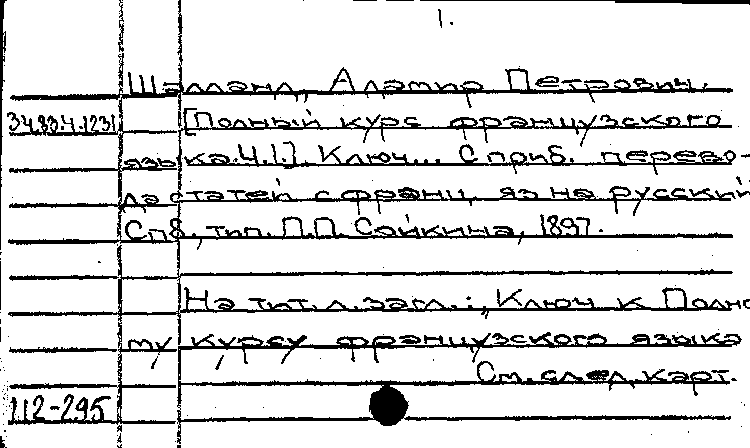 1.
Шалланд, Адамир Петрович.
34.83.4.1231 [Полный курс французского
языка. Ч.1.]. Ключ... С приб. перево-
да статей с франц. яз. на русский
Спб., тип. П.П. Сойкина, 1897.
На тит. л. загл.: „Ключ к Полно
му курсу французского языка
См. след. карт.
112-295